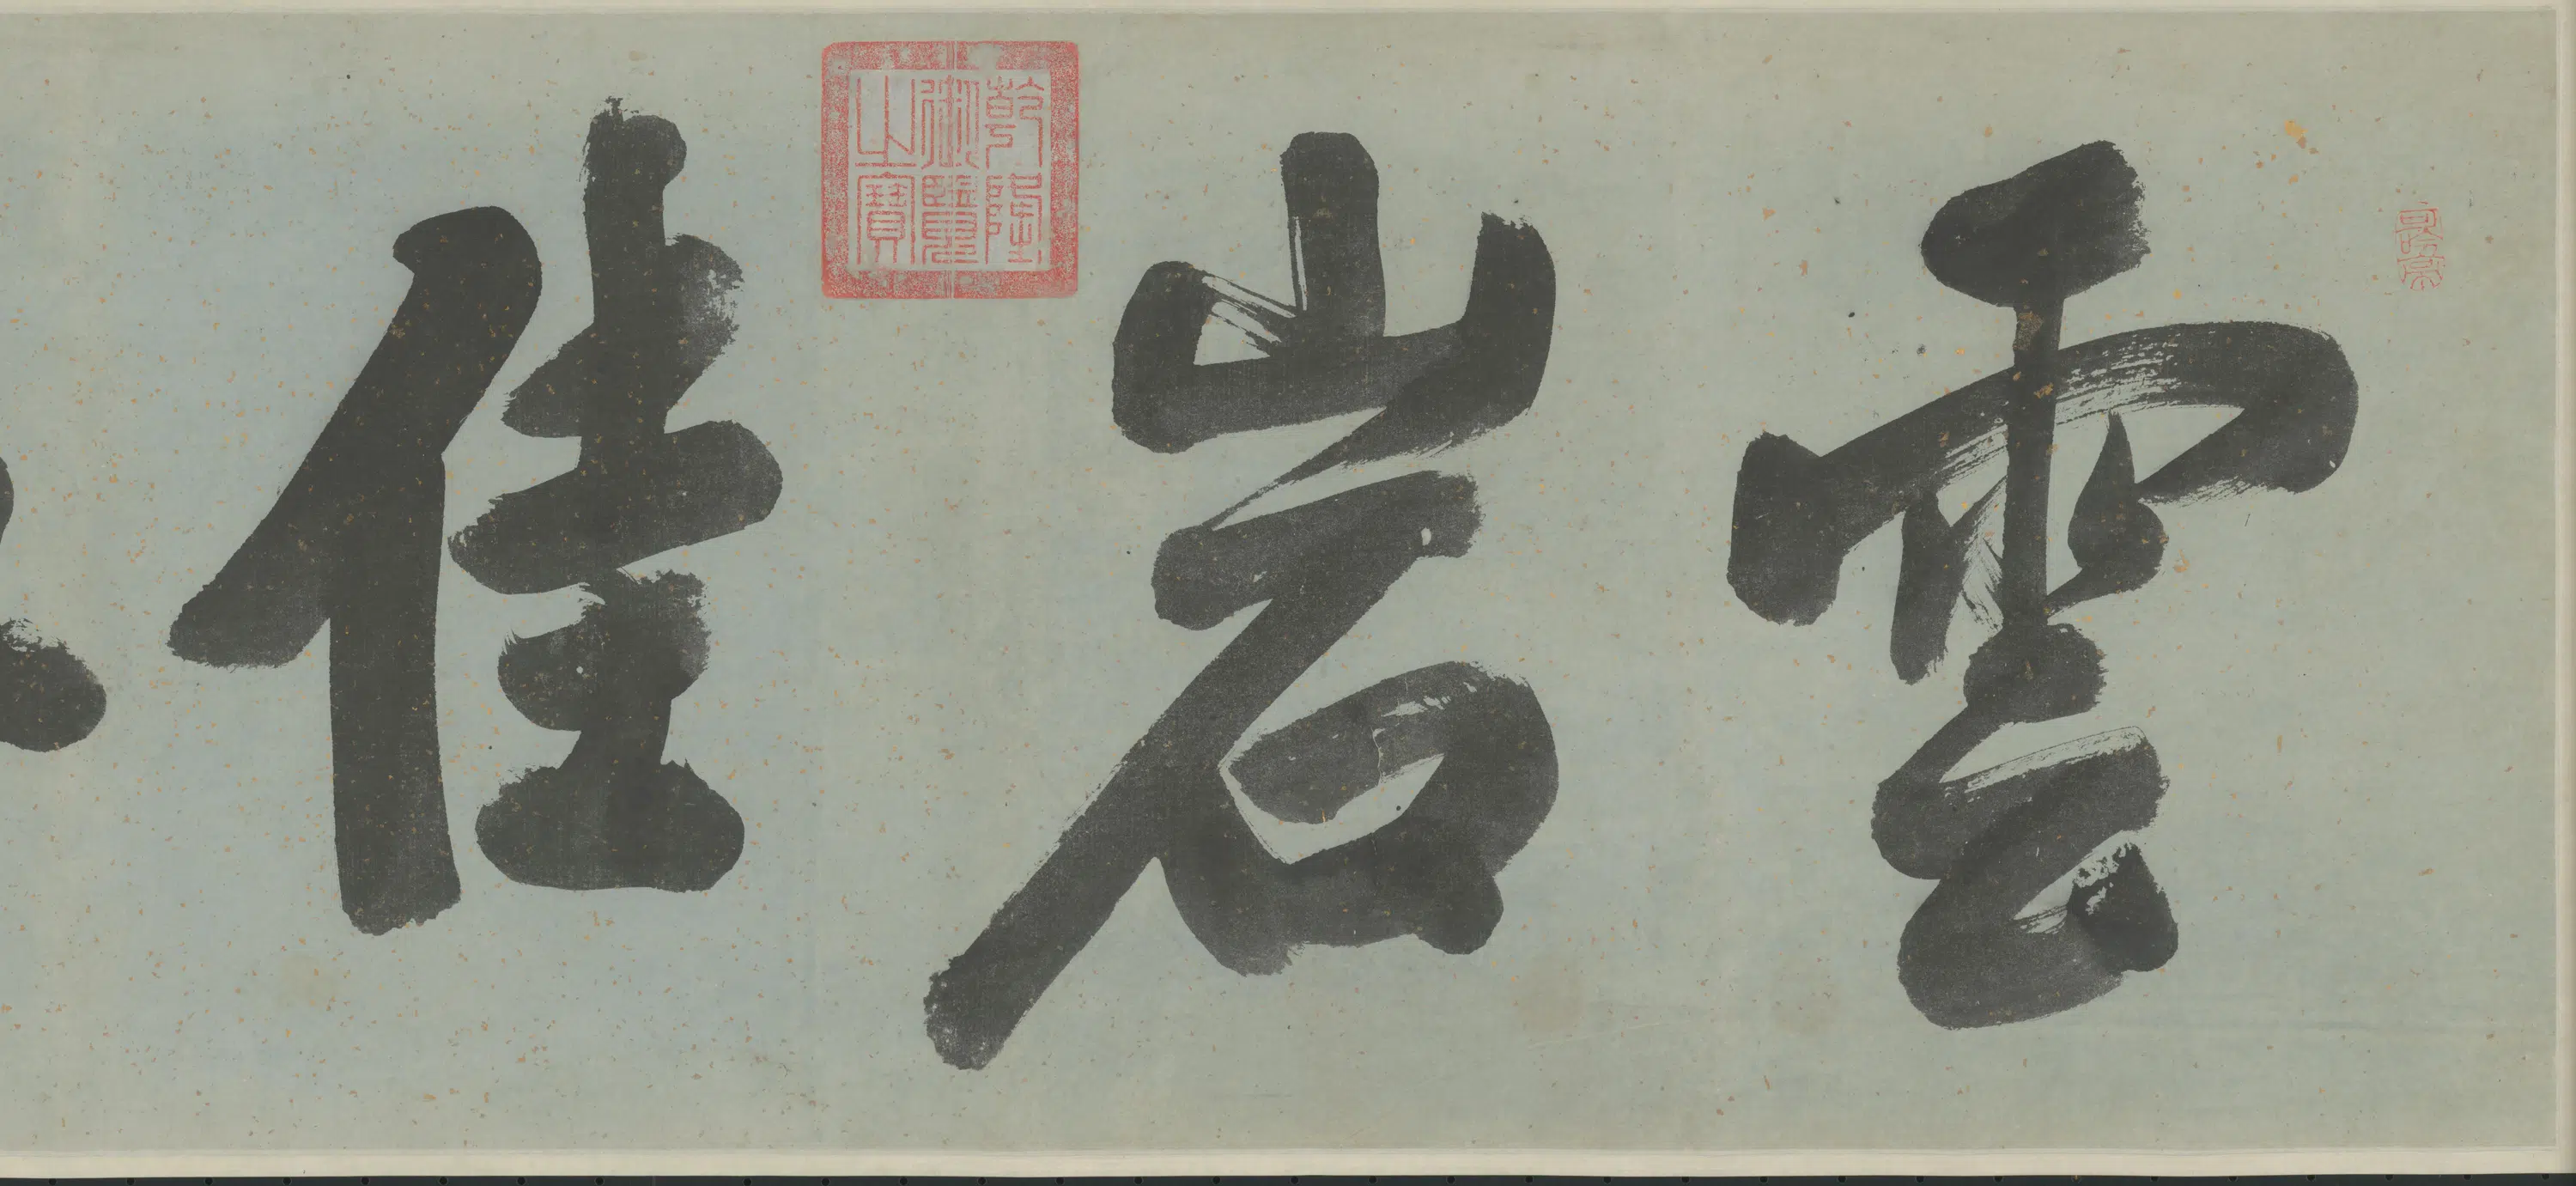 雲岩佳
乾隆
御覽
之寶